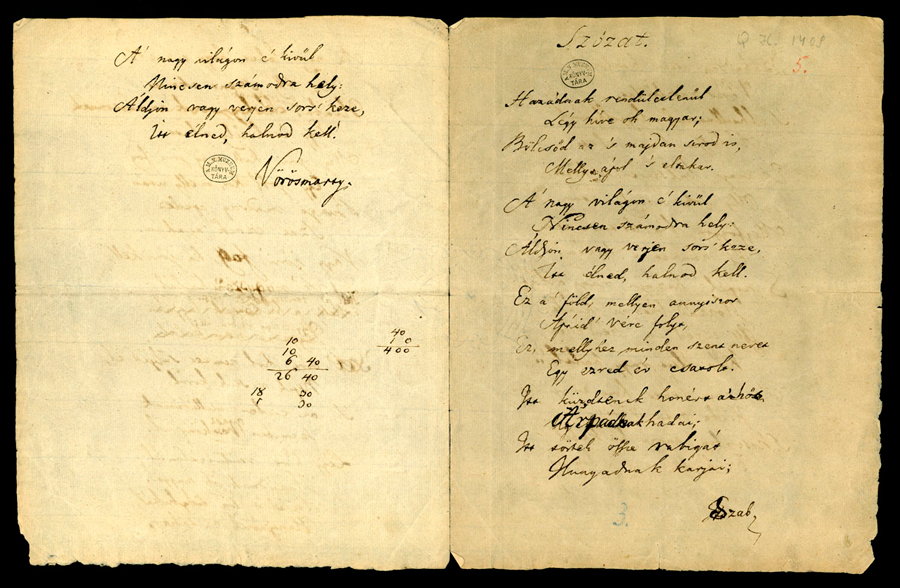 A' nagy világon e' kivül
Nincsen számodra hely:
Áldjon vagy verjen sors' keze,
Itt élned, halnod kell!
A. M. N. MUZEUM
KÖNYV-
TÁRA
Vörösmarty.
10
10
6 40
26 40
18 30
30
40
10
400
Szózat.
Q 76. 1408
5.
A. M. N. MUZEUM
KÖNYV-
TÁRA
Hazádnak rendületlenűl
Légy híve oh magyar;
Bölcsőd az 's majdan sírod is,
Melly ápol 's eltakar.
A' nagy világon e' kivűl
Nincsen számodra hely:
Áldjon vagy verjen sors' keze,
Itt élned, halnod kell.
Ez a' föld, mellyen annyiszor
Apáid' vére folyt,
Ez, mellyhez minden szent nevet
Egy ezred év csatolt.
Itt küzdtenek honért a' hős
Árpádnak hadai;
Itt törtek össze rabigát
Hunyadnak karjai;
Szab
3.